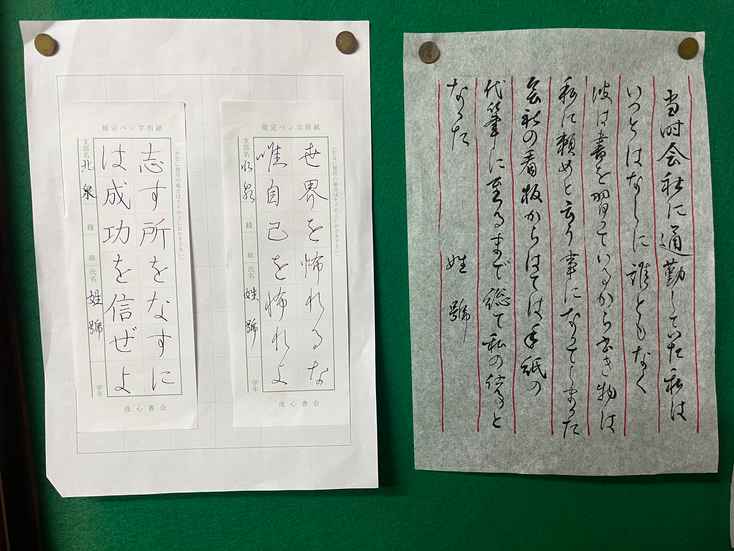 当时会社に通勤していた私は
いつとはなしに誰ともなく
彼は書を習っているから書き物は
私に頼めと云う事になってしまった
会社の看板からはては手紙の
代筆に至るまで総て私の仕事と
なった 姓號
規定ペン字用紙
世界を怖れるな
唯自己を怖れよ
支部名 北泉 段 級 氏名 姓號 学年
洗心書会
規定ペン字用紙
志す所をなすに
は成功を信ぜよ
支部名 北泉 段 級 氏名 姓號 学年
洗心書会